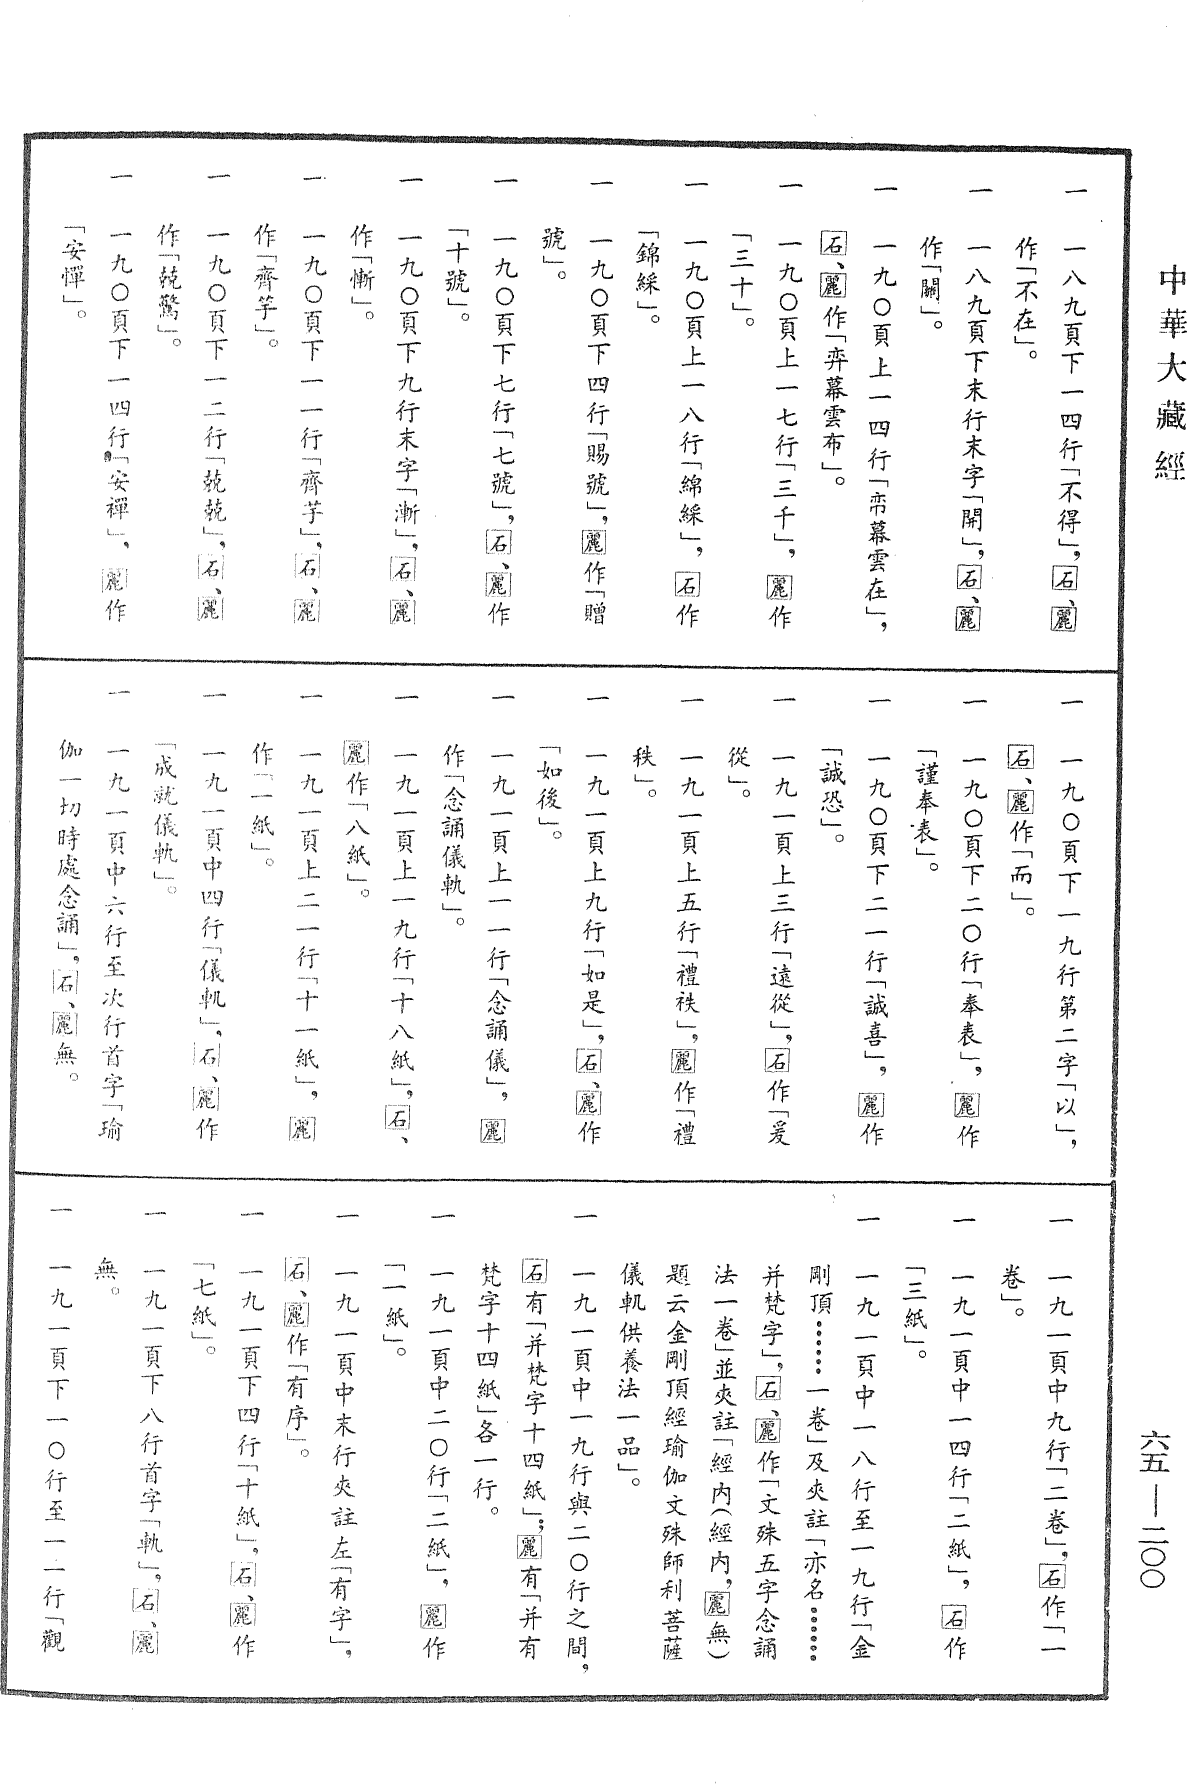 中華大藏經
一　一八九頁下一四行「不得」，石、麗
作「不在」。
一　一八九頁下末行末字「開」，石、麗
作「關」。
一　一九〇頁上一四行「帟幕雲在」，
石、麗作「弈幕雲布」。
一　一九〇頁上一七行「三千」，麗作
「三十」。
一　一九〇頁上一八行「綿綵」，石作
「錦綵」。
一　一九〇頁下四行「賜號」，麗作「贈
號」。
一　一九〇頁下七行「七號」，石、麗作
「十號」。
一　一九〇頁下九行末字「漸」，石、麗
作「慚」。
一　一九〇頁下一一行「齊芋」，石、麗
作「齊竽」。
一　一九〇頁下一二行「兢兢」，石、麗
作「兢驚」。
一　一九〇頁下一四行「安禪」，麗作
「安憚」。
一　一九〇頁下一九行第二字「以」，
石、麗作「而」。
一　一九〇頁下二〇行「奉表」，麗作
「謹奉表」。
一　一九〇頁下二一行「誠喜」，麗作
「誠恐」。
一　一九一頁上三行「遠從」，石作「爰
從」。
一　一九一頁上五行「禮袟」，麗作「禮
秩」。
一　一九一頁上九行「如是」，石、麗作
「如後」。
一　一九一頁上一一行「念誦儀」，麗
作「念誦儀軌」。
一　一九一頁上一九行「十八紙」，石、
麗作「八紙」。
一　一九一頁上二一行「十一紙」，麗
作「一紙」。
一　一九一頁中四行「儀軌」，石、麗作
「成就儀軌」。
一　一九一頁中六行至次行首字「瑜
伽一切時處念誦」，石、麗無。
一　一九一頁中九行「二卷」，石作「一
卷」。
一　一九一頁中一四行「二紙」，石作
「三紙」。
一　一九一頁中一八行至一九行「金
剛頂……一卷」及夾註「亦名……
并梵字」，石、麗作「文殊五字念誦
法一卷」並夾註「經內（經內，麗無）
題云金剛頂經瑜伽文殊師利菩薩
儀軌供養法一品」。
一　一九一頁中一九行與二〇行之間，
石有「并梵字十四紙」；麗有「并有
梵字十四紙」各一行。
一　一九一頁中二〇行「二紙」，麗作
「一紙」。
一　一九一頁中末行夾註左「有字」，
石、麗作「有序」。
一　一九一頁下四行「十紙」，石、麗作
「七紙」。
一　一九一頁下八行首字「軌」，石、麗
無。
一　一九一頁下一〇行至一一行「觀
六五—二〇〇